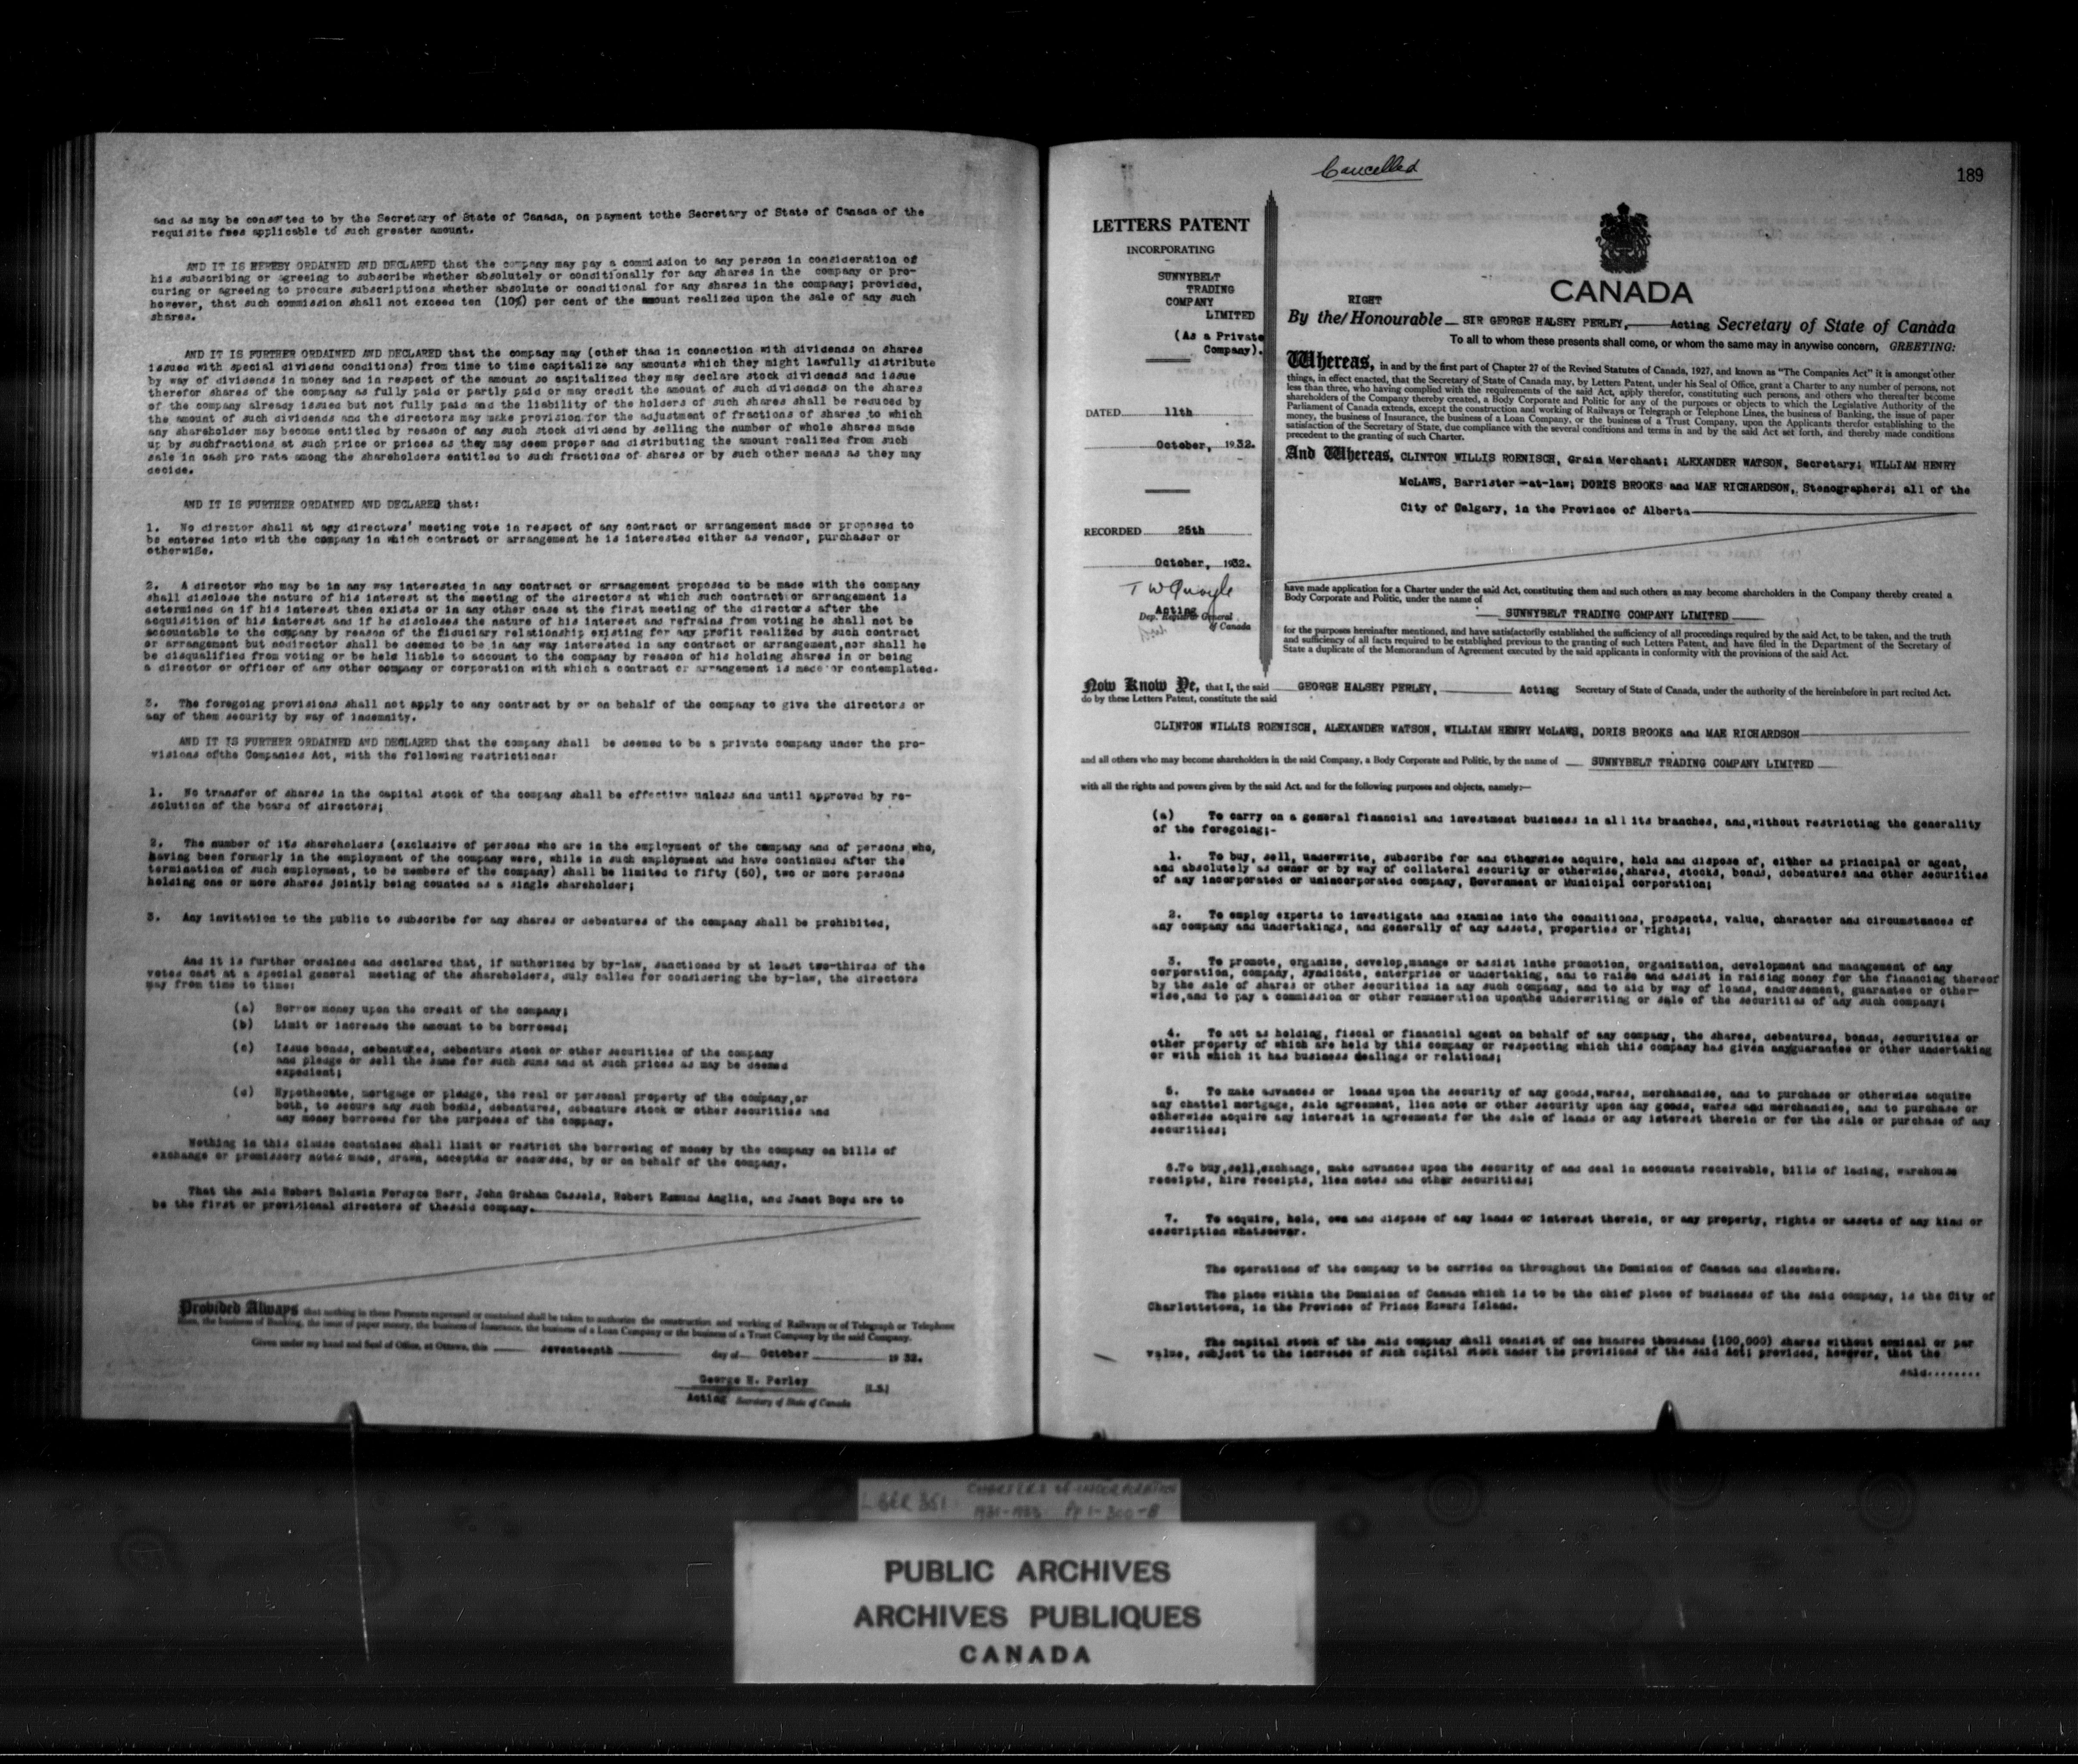 and as may be consented to by the Secretary of State of Canada, on payment tothe Secretary of State of Canada of the
requisite fees applicable to such greater amount.
AND IT IS HEREBY ORDAINED AND DECLARED that the company may pay a commission to any person in consideration of
his subscribing or agreeing to subscribe whether absolutely or conditionally for any shares in the company or pro-
curing or agreeing to procure subscriptions whether absolute or conditional for any shares in the company; provided,
however, that such commission shall not exceed ten (10%) per cent of the amount realized upon the sale of any such
shares.
AND IT IS FURTHER ORDAINED AND DECLARED that the company may (other than in connection with dividends on shares
issued with special dividend conditions) from time to time capitalize any amounts which they might lawfully distribute
by way of dividends in money and in respect of the amount so capitalized they may declare stock dividends and issue
therefor shares of the company as fully paid or partly paid or may credit the amount of such dividends on the shares
of the company already issued but not fully paid and the liability of the holders of such shares shall be reduced by
the amount of such dividends and the directors may make provision for the adjustment of fractions of shares to which
any shareholder may become entitled by reason of any such stock dividend by selling the number of whole shares made
up by suchfractions at such price or prices as they may deem proper and distributing the amount realized from such
sale in cash pro rata among the shareholders entitled to such fractions of shares or by such other means as they may
decide.
AND IT IS FURTHER ORDAINED AND DECLARED that:
1. No director shall at any directors' meeting vote in respect of any contract or arrangement made or proposed to
be entered into with the company in which contract or arrangement he is interested either as vendor, purchaser or
otherwise.
2. A director who may be in any way interested in any contract or arrangement proposed to be made with the company
shall disclose the nature of his interest at the meeting of the directors at which such contract or arrangement is
determined on if his interest then exists or in any other case at the first meeting of the directors after the
acquisition of his interest and if he discloses the nature of his interest and refrains from voting he shall not be
accountable to the company by reason of the fiduciary relationship existing for any profit realized by such contract
or arrangement but nodirector shall be deemed to be in any way interested in any contract or arrangement,nor shall he
be disqualified from voting or be held liable to account to the company by reason of his holding shares in or being
a director or officer of any other company or corporation with which a contract or arrangement is made or contemplated.
3. The foregoing provisions shall not apply to any contract by or on behalf of the company to give the directors or
any of them security by way of indemnity.
AND IT IS FURTHER ORDAINED AND DECLARED that the company shall be deemed to be a private company under the pro-
visions ofthe Companies Act, with the following restrictions:
1. No transfer of shares in the capital stock of the company shall be effective unless and until approved by re-
solution of the board of directors;
2. The number of its shareholders (exclusive of persons who are in the employment of the company and of persons who,
having been formerly in the employment of the company were, while in such employment and have continued after the
termination of such employment, to be members of the company) shall be limited to fifty (50), two or more persons
holding one or more shares jointly being counted as a single shareholder;
3. Any invitation to the public to subscribe for any shares or debentures of the company shall be prohibited,
And it is further ordained and declared that, if authorized by by-law, sanctioned by at least two-thirds of the
votes cast at a special general meeting of the shareholders, duly called for considering the by-law, the directors
may from time to time:
(a) Borrow money upon the credit of the company;
(b) Limit or increase the amount to be borrowed;
(c) Issue bonds, debentures, debenture stock or other securities of the company
and pledge or sell the same for such sums and at such prices as may be deemed
expedient;
(d) Hypothecate, mortgage or pledge, the real or personal property of the company,or
both, to secure any such bonds, debentures, debenture stock or other securities and
any money borrowed for the purposes of the company.
Nothing in this clause contained shall limit or restrict the borrowing of money by the company on bills of
exchange or promissory notes made, drawn, accepted or endorsed, by or on behalf of the company.
That the said Robert Baldwin Fordyce Barr, John Graham Cassels, Robert Edmund Anglin, and Janet Boyd are to
be the first or provisional directors of thesaid company.
Provided Always that nothing in these Presents expressed or contained shall be taken to authorize the construction and working of Railways or of Telegraph or Telephone
lines, the business of Banking, the issue of paper money, the business of Insurance, the business of a Loan Company or the business of a Trust Company by the said Company.
Given under my hand and Seal of Office, at Ottawa, this seventeenth day of October 1932.
George H. Perley [L.S.]
Acting Secretary of State of Canada
Cancelled
189
LETTERS PATENT
INCORPORATING
SUNNYBELT
TRADING
COMPANY
LIMITED
(As a Private
Company).
DATED 11th
October, 1932.
RECORDED 25th
October, 1932.
T W Quayle
Acting
Dep. Registrar General
of Canada
CANADA
RIGHT
By the/ Honourable SIR GEORGE HALSEY PERLEY, Acting Secretary of State of Canada
To all to whom these presents shall come, or whom the same may in anywise concern, GREETING:
Whereas, in and by the first part of Chapter 27 of the Revised Statutes of Canada, 1927, and known as "The Companies Act" it is amongst other
things, in effect enacted, that the Secretary of State of Canada may, by Letters Patent, under his Seal of Office, grant a Charter to any number of persons, not
less than three, who having complied with the requirements of the said Act, apply therefor, constituting such persons, and others who thereafter become
shareholders of the Company thereby created, a Body Corporate and Politic for any of the purposes or objects to which the Legislative Authority of the
Parliament of Canada extends, except the construction and working of Railways or Telegraph or Telephone Lines, the business of Banking, the issue of paper
money, the business of Insurance, the business of a Loan Company, or the business of a Trust Company, upon the Applicants therefor establishing to the
satisfaction of the Secretary of State, due compliance with the several conditions and terms in and by the said Act set forth, and thereby made conditions
precedent to the granting of such Charter.
And Whereas, CLINTON WILLIS ROENISCH, Grain Merchant; ALEXANDER WATSON, Secretary; WILLIAM HENRY
McLAWS, Barrister-at-law; DORIS BROOKS and MAE RICHARDSON, Stenographers; all of the
City of Calgary, in the Province of Alberta
have made application for a Charter under the said Act, constituting them and such others as may become shareholders in the Company thereby created a
Body Corporate and Politic, under the name of
SUNNYBELT TRADING COMPANY LIMITED
for the purposes hereinafter mentioned, and have satisfactorily established the sufficiency of all proceedings required by the said Act, to be taken, and the truth
and sufficiency of all facts required to be established previous to the granting of such Letters Patent, and have filed in the Department of the Secretary of
State a duplicate of the Memorandum of Agreement executed by the said applicants in conformity with the provisions of the said Act.
Now Know Ye, that I, the said GEORGE HALSEY PERLEY, Acting Secretary of State of Canada, under the authority of the hereinbefore in part recited Act,
do by these Letters Patent, constitute the said
CLINTON WILLIS ROENISCH, ALEXANDER WATSON, WILLIAM HENRY McLAWS, DORIS BROOKS and MAE RICHARDSON
and all others who may become shareholders in the said Company, a Body Corporate and Politic, by the name of SUNNYBELT TRADING COMPANY LIMITED
with all the rights and powers given by the said Act, and for the following purposes and objects, namely:—
(a) To carry on a general financial and investment business in all its branches, and,without restricting the generality
of the foregoing;-
1. To buy, sell, underwrite, subscribe for and otherwise acquire, hold and dispose of, either as principal or agent,
and absolutely as owner or by way of collateral security or otherwise,shares, stocks, bonds, debentures and other securities
of any incorporated or unincorporated company, Government or Municipal corporation;
2. To employ experts to investigate and examine into the conditions, prospects, value, character and circumstances of
any company and undertakings, and generally of any assets, properties or rights;
3. To promote, organize, develop,manage or assist inthe promotion, organization, development and management of any
corporation, company, syndicate, enterprise or undertaking, and to raise and assist in raising money for the financing thereof
by the sale of shares or other securities in any such company, and to aid by way of loans, endorsement, guarantee or other-
wise,and to pay a commission or other remuneration uponthe underwriting or sale of the securities of any such company;
4. To act as holding, fiscal or financial agent on behalf of any company, the shares, debentures, bonds, securities or
other property of which are held by this company or respecting which this company has given anyguarantee or other undertaking
or with which it has business dealings or relations;
5. To make advances or loans upon the security of any goods,wares, merchandise, and to purchase or otherwise acquire
any chattel mortgage, sale agreement, lien note or other security upon any goods, wares and merchandise, and to purchase or
otherwise acquire any interest in agreements for the sale of lands or any interest therein or for the sale or purchase of any
securities;
6.To buy,sell,exchange, make advances upon the security of and deal in accounts receivable, bills of lading, warehouse
receipts, hire receipts, lien notes and other securities;
7. To acquire, hold, own and dispose of any lands or interest therein, or any property, rights or assets of any kind or
description whatsoever.
The operations of the company to be carried on throughout the Dominion of Canada and elsewhere.
The place within the Dominion of Canada which is to be the chief place of business of the said company, is the City of
Charlottetown, in the Province of Prince Edward Island.
The capital stock of the said company shall consist of one hundred thousand (100,000) shares without nominal or par
value, subject to the increase of such capital stock under the provisions of the said Act; provided, however, that the
said........
LIBER 351 CHARTERS OF INCORPORATION
1931-1933 Pp 1-300-B
PUBLIC ARCHIVES
ARCHIVES PUBLIQUES
CANADA